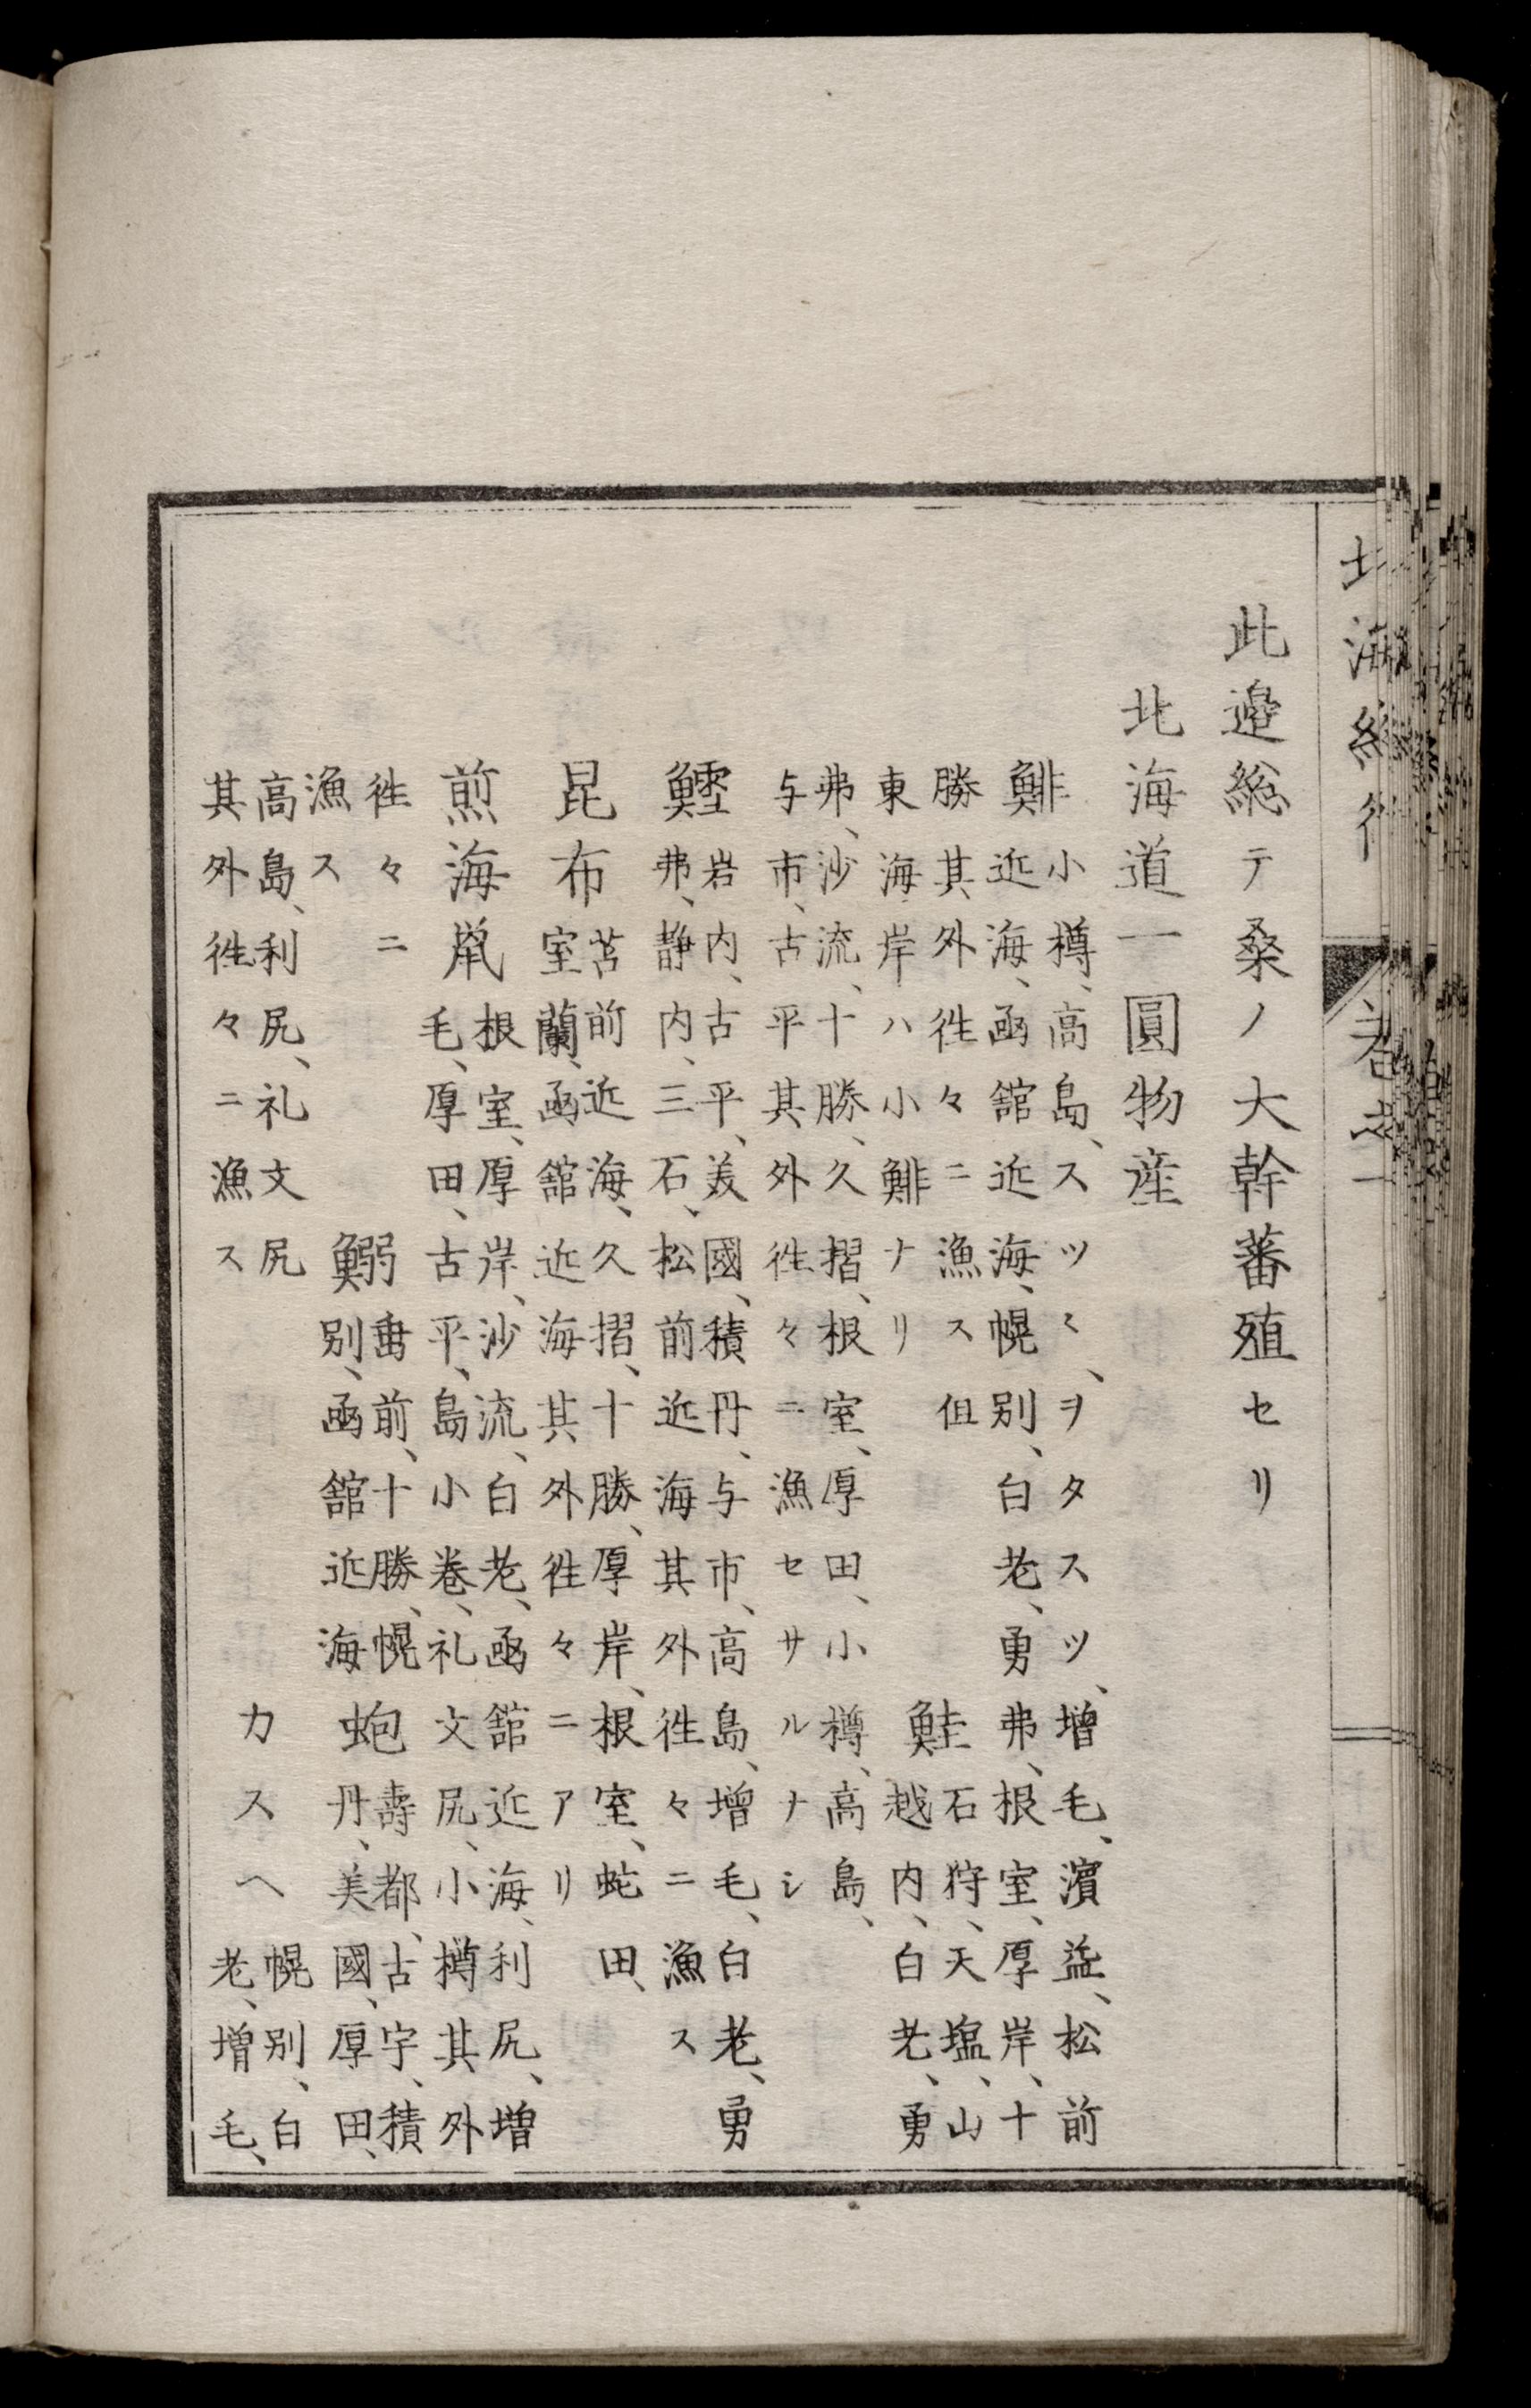 北海紀行 巻之一
此邉総テ桑ノ大幹蕃殖セリ
北海道一圓物産
鯡 小樽、高島、スツヽ、ヲタスツ、増毛、濱益、松前
近海、凾舘近海、幌别、白老、勇弗、根室、厚岸、十
勝其外徃々ニ漁ス但
東海岸ハ小鯡ナリ
鮭 石狩、天塩、山
越内、白老、勇
弗、沙流、十勝、久摺、根室、厚田、小樽、高島、
与市、古平其外徃々ニ漁セサルナシ
鱈 岩内、古平、美國、積丹、与市、高島、増毛、白老、勇
弗、静内、三石、松前近海其外徃々ニ漁ス
昆布 苫前近海、久摺、十勝、厚岸、根室、蛇田、
室蘭、凾舘近海其外徃々ニアリ
煎海鼠 根室、厚岸、沙流、白老、凾舘近海、利尻、増
毛、厚田、古平、島小巻、礼文尻、小樽其外
徃々ニ
漁ス
鰯 前、十勝、幌
别、凾舘近海
蚫 壽都、古宇、積
丹、美國、厚田、
高島、利尻、礼文尻
其外徃々ニ漁ス
カスヘ 幌别、白
老、増毛、